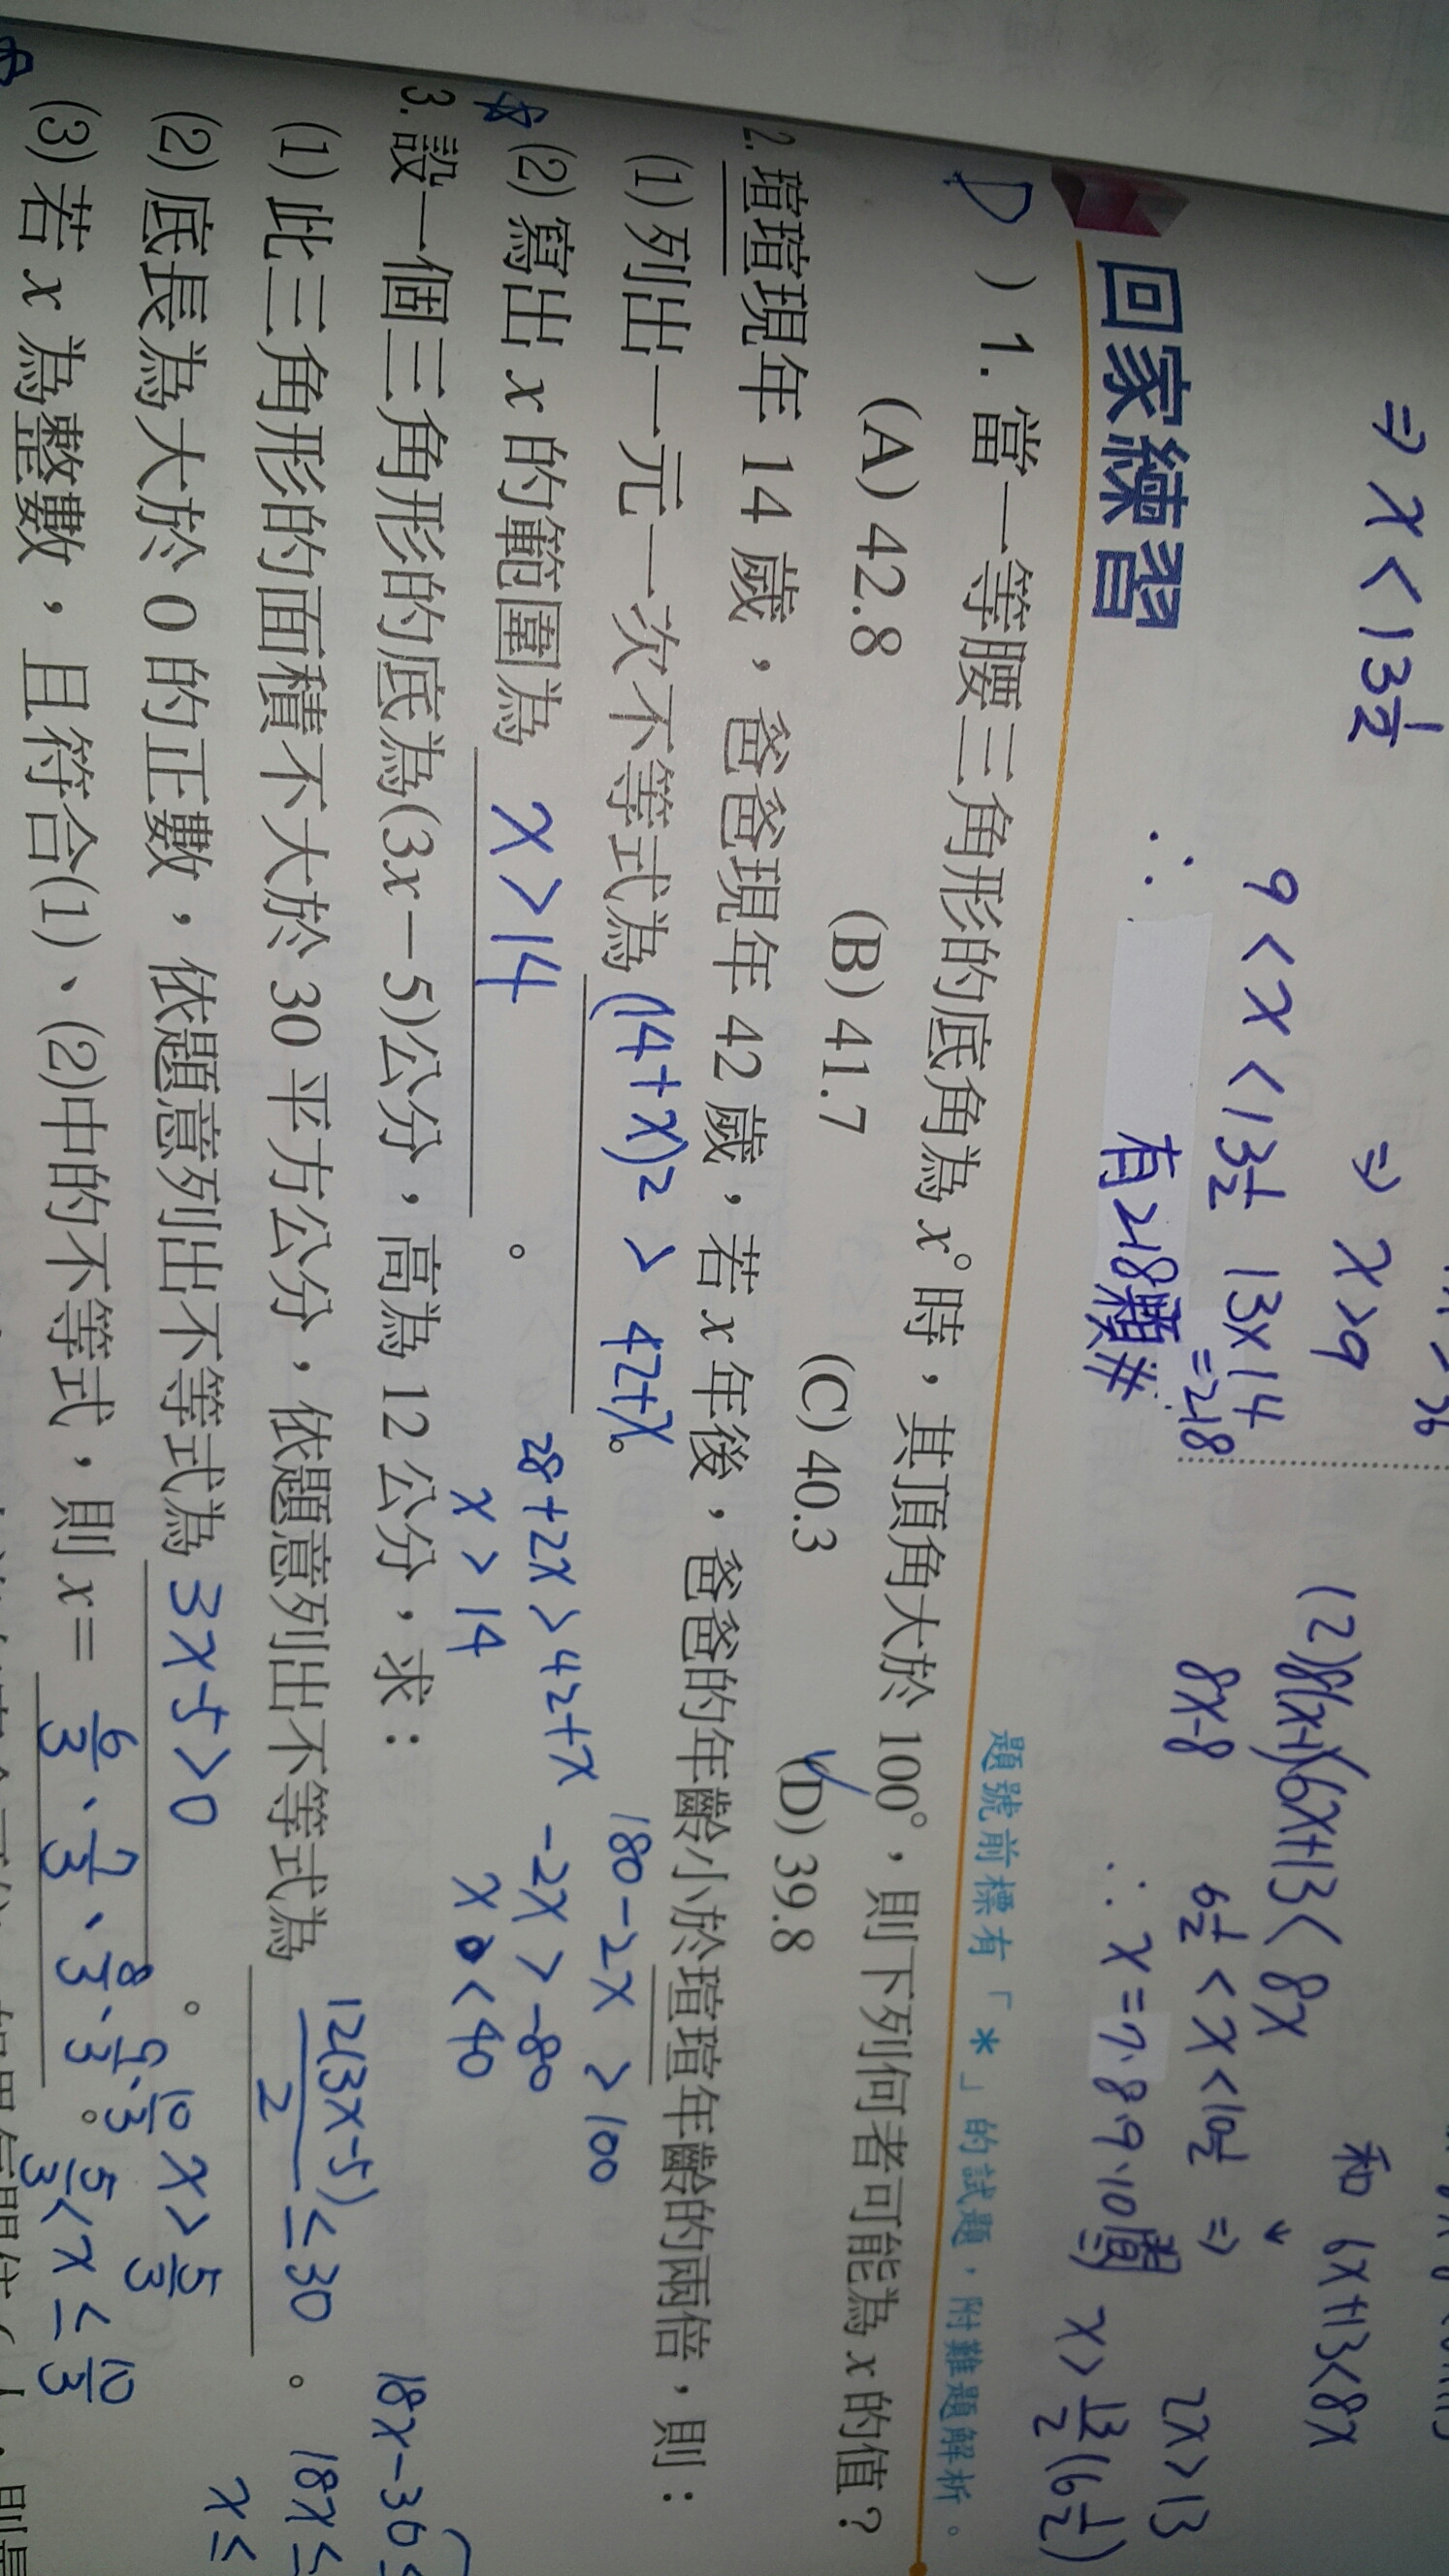 ⇒ x < 13 1/2
⇒ x > 9
9 < x < 13 1/2
13×14
=218
∴ 有218顆#
和 6x+13<8x
(2)8(x-1)<6x+13< 8x
8x-8
6 1/2 < x < 10 1/2 ⇒
2x > 13
∴ x = 7.8.9.10間
x > 13/2 (6 1/2)
回家練習
題號前標有「*」的試題,附難題解析。
D ) 1. 當一等腰三角形的底角為 x° 時,其頂角大於 100°,則下列何者可能為 x 的值?
(A) 42.8 (B) 41.7 (C) 40.3 (D) 39.8
2. 瑄瑄現年 14 歲,爸爸現年 42 歲,若 x 年後,爸爸的年齡小於瑄瑄年齡的兩倍,則:
(1) 列出一元一次不等式為 (14+x)2 > 42+x。
180 - 2x > 100
(2) 寫出 x 的範圍為 x > 14 。
28+2x > 42+x
-2x > -80
x > 14
x < 40
3. 設一個三角形的底為(3x-5)公分,高為 12 公分,求:
(1) 此三角形的面積不大於 30 平方公分,依題意列出不等式為 12(3x-5)/2 ≤ 30 。
18x-30≤
18x ≤
x ≤
(2) 底長為大於 0 的正數,依題意列出不等式為 3x-5>0 。
x > 5/3
(3) 若 x 為整數,且符合(1)、(2)中的不等式,則 x= 6/3、7/3、8/3、9/3、10/3 。
5/3 < x ≤ 10/3